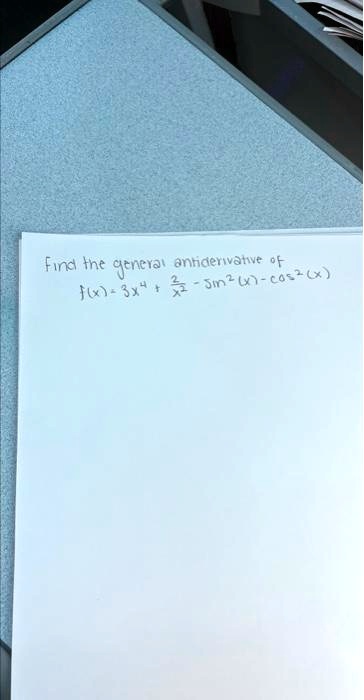 Find the general antiderivative of
f(x) = 3x⁴ + 2/x² - sin²(x) - cos²(x)